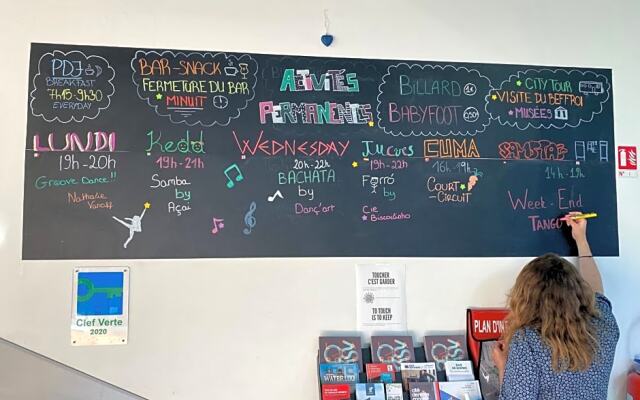 PDJ
BREAKFAST
7H15-9H30
EVERYDAY
BAR-SNACK
FERMETURE DU BAR
MINUIT
ACTIVITÉS
PERMANENTES
BILLARD
BABYFOOT
CITY TOUR
VISITE DU BEFFROI
MUSÉES
LUNDI
19H-20H
GROOVE DANCE!!
Nathalie
Kedd
19H-21H
Samba
by
Açai
WEDNESDAY
20H-22H
BACHATA
by
Danç'art
Jueves
19H-22H
Forró
by
Cie
Biscoitinho
CUMA
16H-19H
COURT-
CIRCUIT
SAMSTAG
14H-19H
WEEK-END
TANGO
Clef Verte
2020
TOUCHER
C'EST GARDER
TO TOUCH
IS TO KEEP
PLAN D'IN
WATERLOO